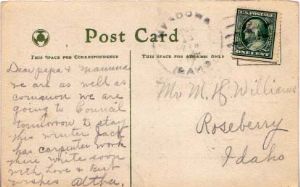 Post Card
THIS SPACE FOR CORRESPONDENCE
THIS SPACE FOR ADDRESS ONLY
MEADOWS
IDAHO
Dear papa & mamma
we are as well as
common we are
going to Council
tomorrow to stay
this winter Jack
has carpenter work
there write soon
with Love & best
wishes
Mr M. H. Williams
Roseberry
Idaho